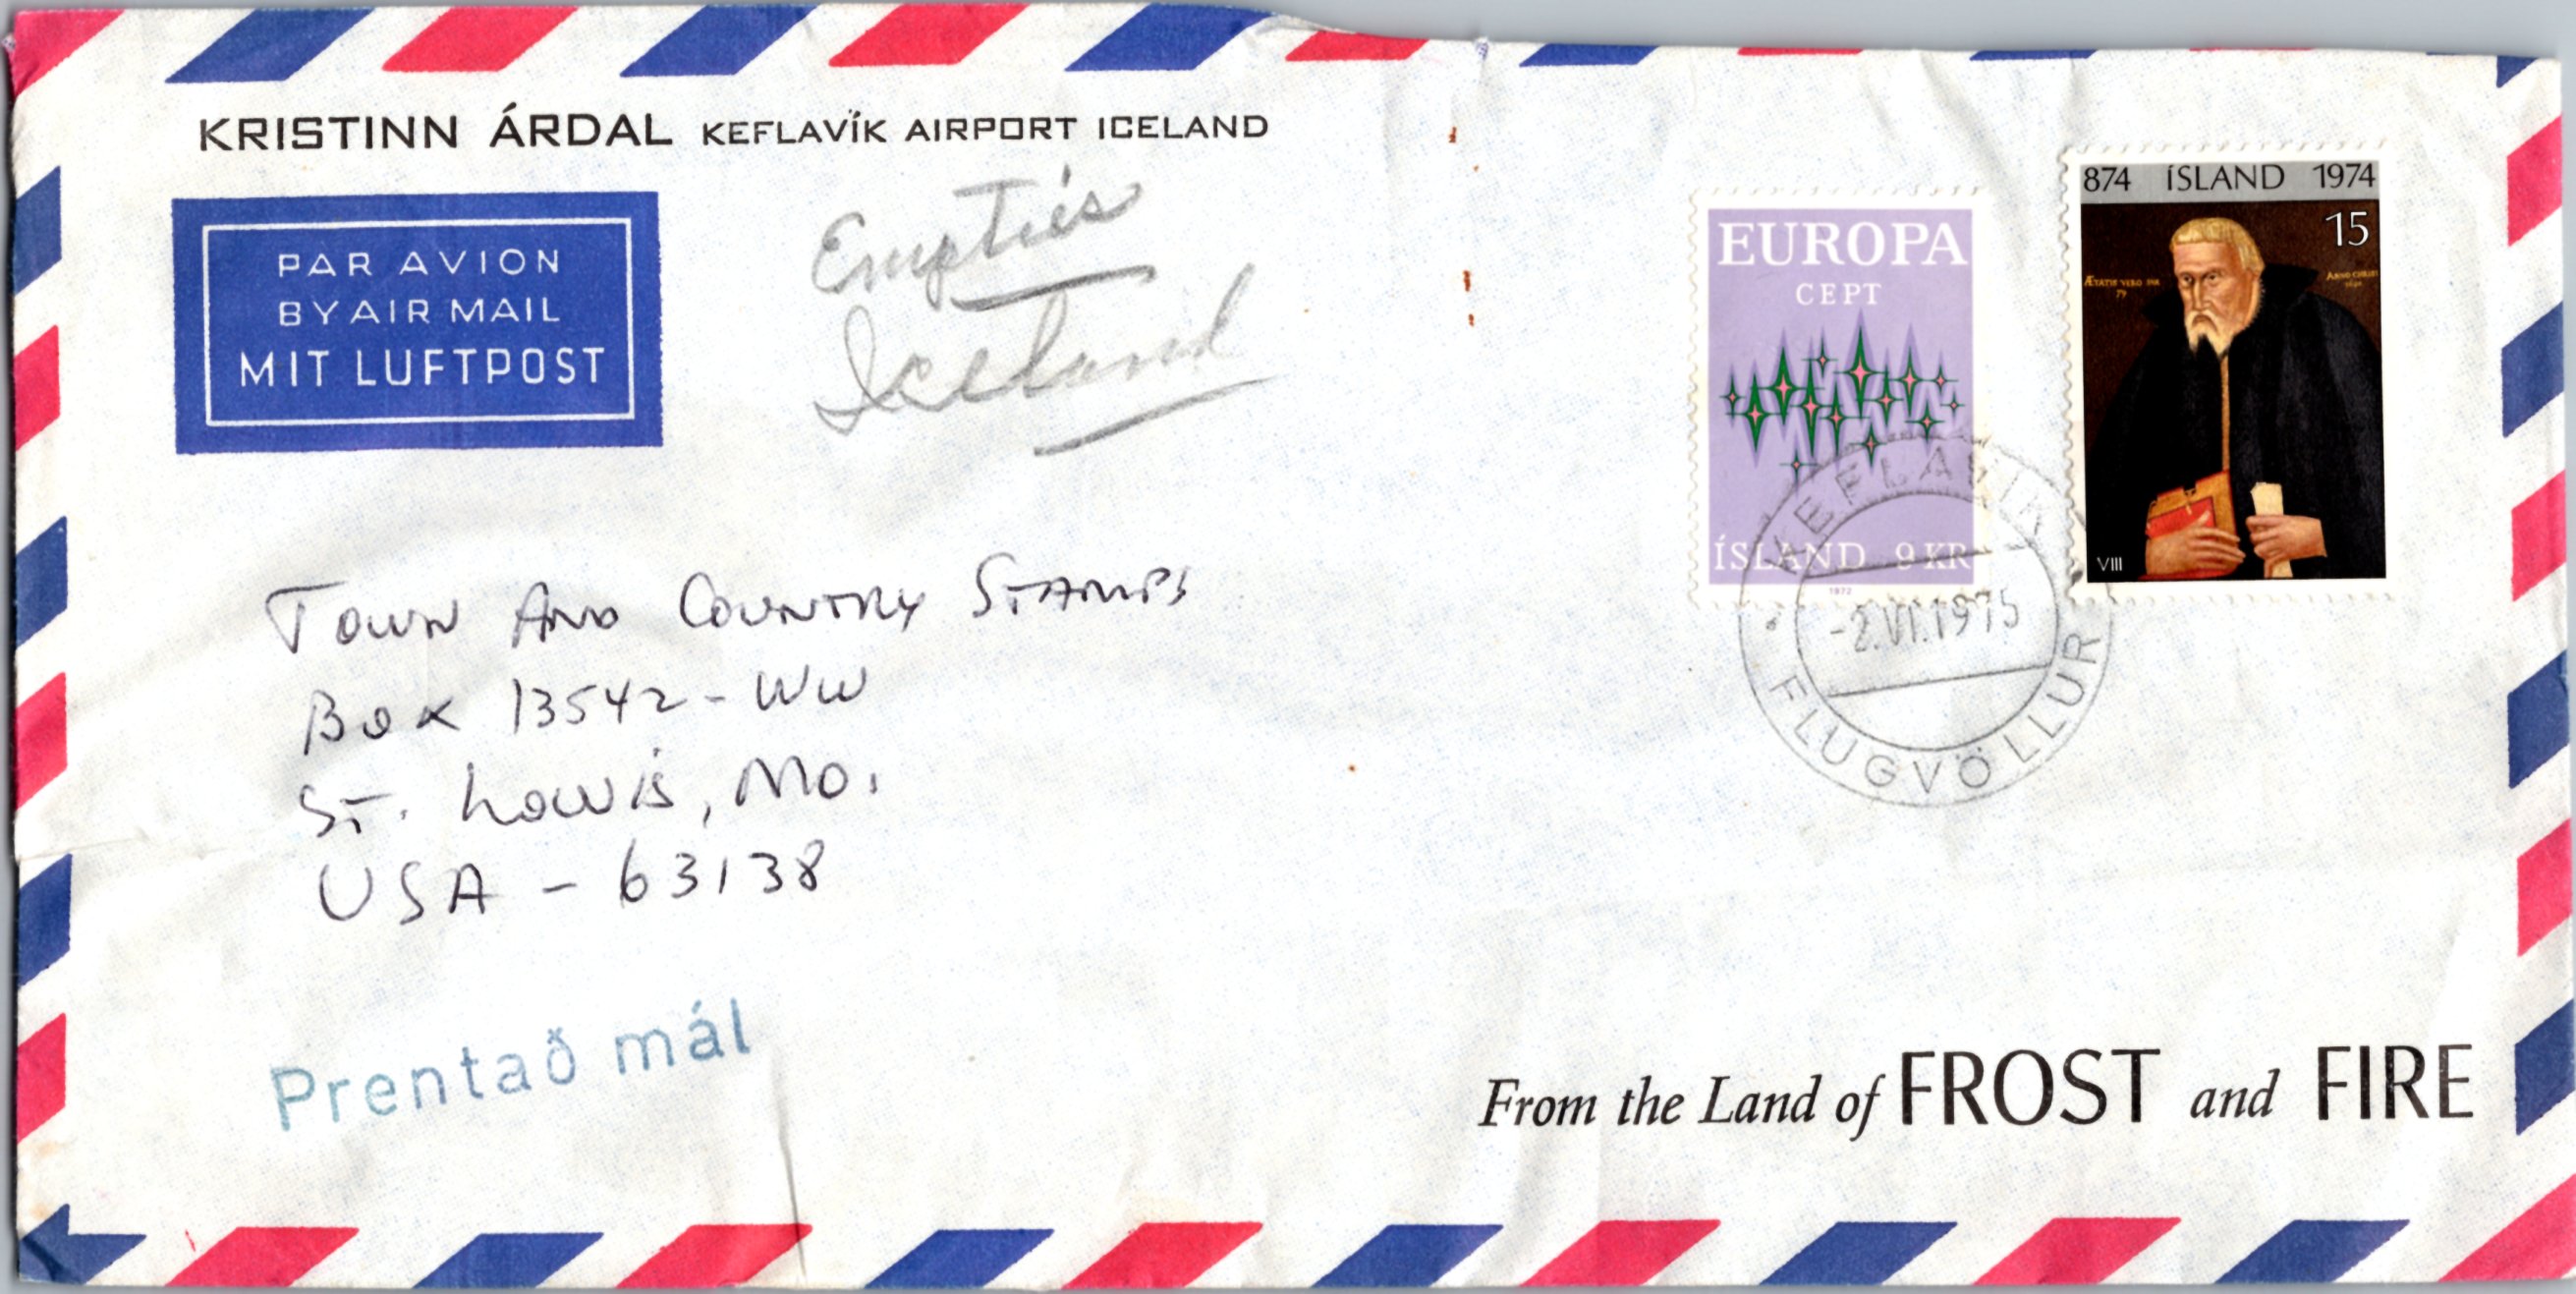 KRISTINN ÁRDAL KEFLAVÍK AIRPORT ICELAND
PAR AVION
BY AIR MAIL
MIT LUFTPOST
Empties
Iceland
EUROPA
CEPT
ÍSLAND 9 KR
1972
874 ÍSLAND 1974
15
ÆTATIS VERO SVÆ
79
ANNO CHRISTI
VIII
KEFLAVÍK
-2.VI.1975
FLUGVÖLLUR
TOWN AND COUNTRY STAMPS
BOX 13542-WW
ST. LOUIS, MO.
USA - 63138
Prentað mál
From the Land of FROST and FIRE